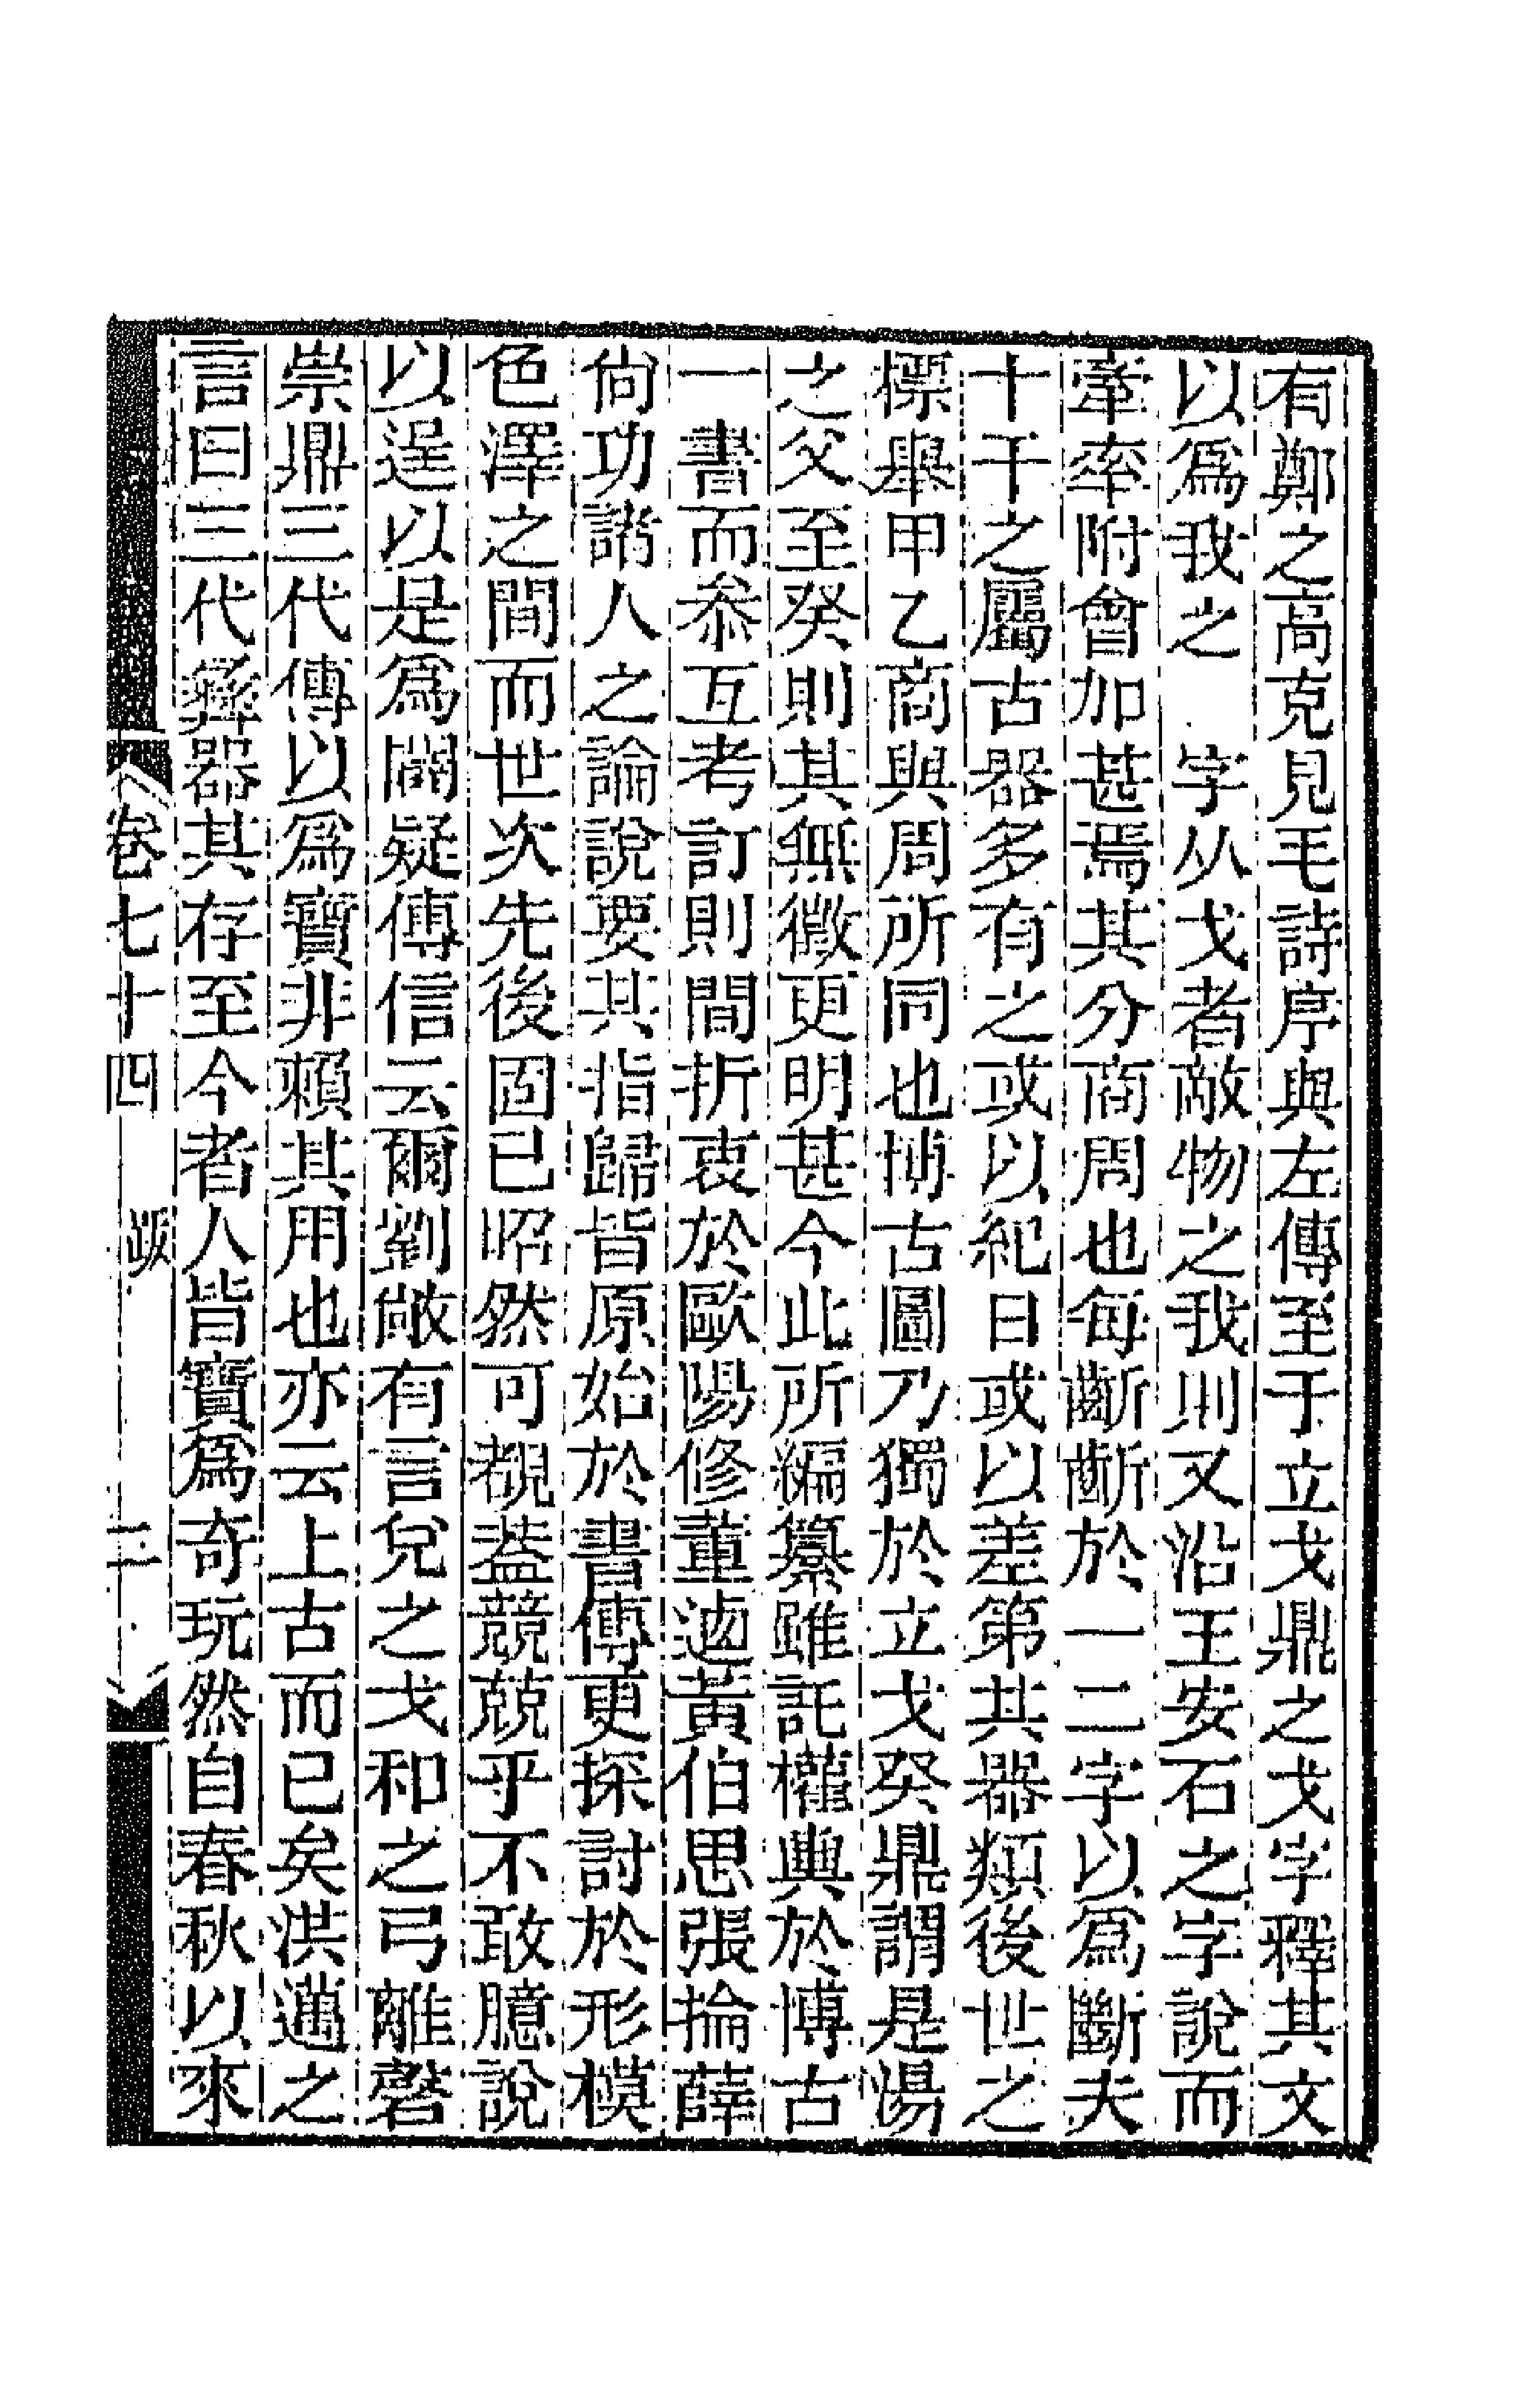 有鄭之高克見毛詩序與左傳至于立戈鼎之戈字釋其文
以爲我之　字从戈者敵物之我則又沿王安石之字說而
牽率附會加甚焉其分商周也每斷斷於一二字以爲斷夫
十干之屬古器多有之或以紀日或以差第其器類後世之
標舉甲乙商與周所同也博古圖乃獨於立戈癸鼎謂是湯
之父至癸則其無徵更明甚今此所編纂雖託權輿於博古
一書而叅互考訂則間折衷於歐陽修董逌黃伯思張掄薛
尙功諸人之論說要其指歸皆原始於書傳更探討於形模
色澤之間而世次先後固已昭然可覩葢競競乎不敢臆說
以逞以是爲闕疑傳信云爾劉敞有言兌之戈和之弓離磬
崇鼎三代傳以爲寶非賴其用也亦云上古而已矣洪邁之
言曰三代彝器其存至今者人皆寶爲奇玩然自春秋以來
卷七十四　跋　二